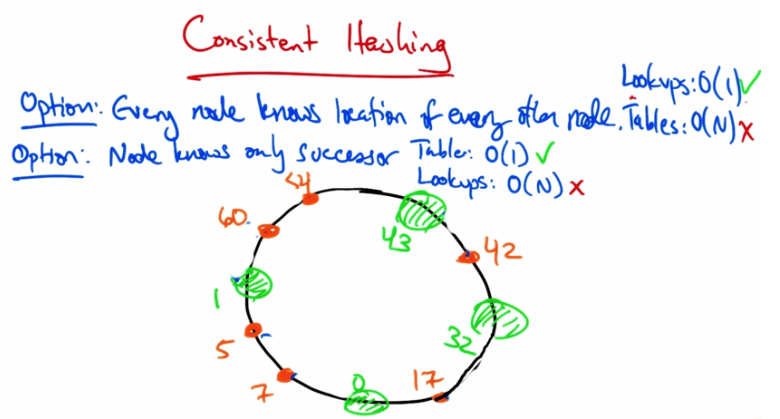 Consistent Hashing
Lookups: O(1) ✓
Option: Every node knows location of every other node. Tables: O(N) x
Option: Node knows only successor Table: O(1) ✓
Lookups: O(N) x
54
60
43
42
1
32
5
7
0
17